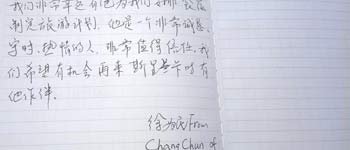 我们非常幸运有他为我们安排
制定旅游计划。他是一个非常诚恳、
守时、热情的人,非常值得信任,我
们希望有机会再来斯里兰卡时有
他作伴。
徐为民From
ChangChun of